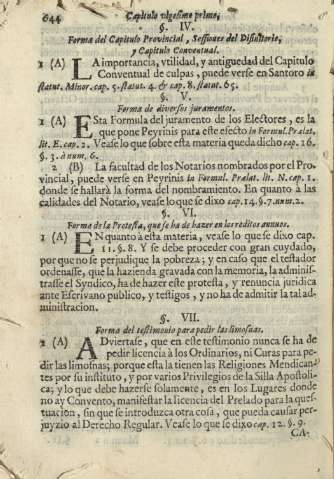 644 Capitulo vigesimo primo,
§. IV.
Forma del Capitulo Provincial, Sessiones del Difinitorio,
y Capitulo Conventual.
1 (A) LA importancia, vtilidad, y antiguedad del Capitulo
Conventual de culpas, puede verse en Santoro in
statut. Minor. cap. 5. statut. 4. & cap. 8. statut. 65.
§. V.
Forma de diversos juramentos.
1 (A) ESta Formula del juramento de los Electores, es la
que pone Peyrinis para este efecto in Formul. Prælat.
lit. E. cap. 2. Vease lo que sobre esta materia queda dicho cap. 16.
§. 3. à num. 6.
2 (B) La facultad de los Notarios nombrados por el Pro-
vincial, puede verse en Peyrinis in Formul. Prælat. lit. N. cap. 1.
donde se hallarà la forma del nombramiento. En quanto à las
calidades del Notario, vease lo que se dixo cap. 14. §. 7. num. 2.
§. VI.
Forma de la Protesta, que se ha de hazer en los reditos annuos.
1 (A) EN quanto a esta materia, vease lo que se dixo cap.
11. §. 8. Y se debe proceder con gran cuydado,
por que no se perjudique la pobreza; y en caso que el testador
ordenasse, que la hazienda gravada con la memoria, la adminis-
trasse el Syndico, ha de hazer este protesta, y renuncia juridica
ante Escrivano publico, y testigos, y no ha de admitir la tal ad-
ministracion.
§. VII.
Forma del testimonio para pedir las limosnas.
1 (A) ADviertase, que en este testimonio nunca se ha de
pedir licencia à los Ordinarios, ni Curas para pe-
dir las limosnas; porque esta la tienen las Religiones Mendican-
tes por su instituto, y por varios Privilegios de la Silla Apostoli-
ca; y lo que debe hazerse solamente, es en los Lugares donde
no ay Convento, manifestar la licencia del Prelado para la ques-
tuacion, sin que se introduzca otra cosa, que pueda causar per-
juyzio al Derecho Regular. Vease lo que se dixo cap. 12. §. 9.
CA-